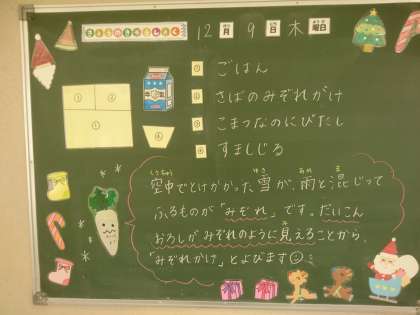 きょうのきゅうしょく
12月 9日 木曜日
① ごはん
② さばのみぞれがけ
③ こまつなのにびたし
④ すましじる
空中でとけかかった雪が、雨と混じって
ふるものが「みぞれ」です。だいこん
おろしがみぞれのように見えることから、
「みぞれがけ」とよびます